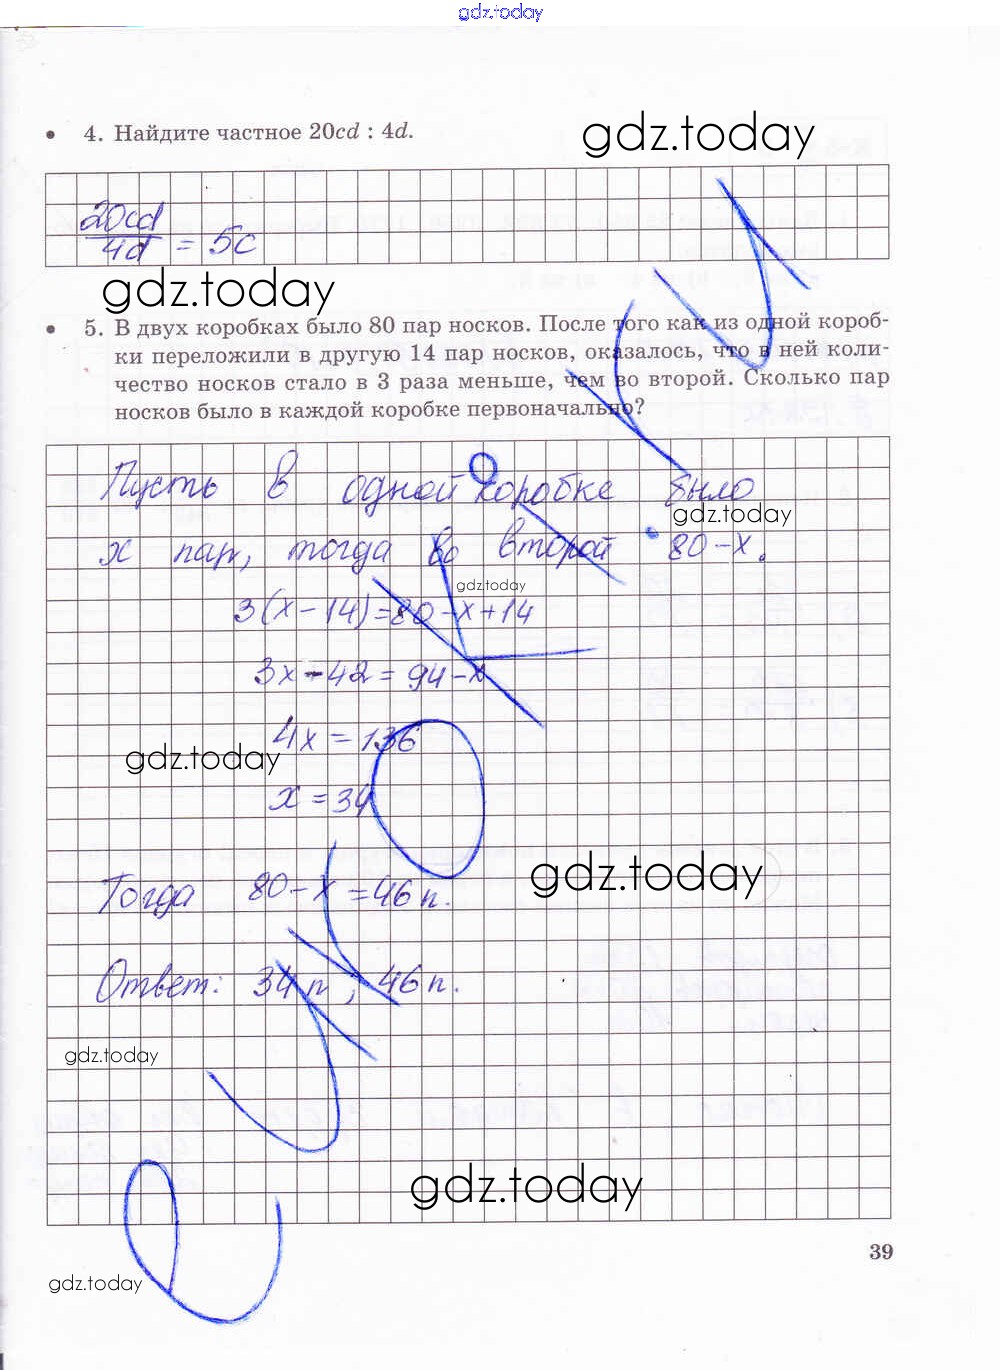 gdz.today
• 4. Найдите частное 20cd : 4d.
gdz.today
20cd
4d = 5c
gdz.today
• 5. В двух коробках было 80 пар носков. После того как из одной короб-
ки переложили в другую 14 пар носков, оказалось, что в ней коли-
чество носков стало в 3 раза меньше, чем во второй. Сколько пар
носков было в каждой коробке первоначально?
Пусть в одной коробке было
gdz.today
x пар, тогда во второй 80-x.
gdz.today
3(x-14)=80-x+14
3x-42=94-x
4x=136
gdz.today
x=34
gdz.today
Тогда 80-x=46п.
Ответ: 34п; 46п.
gdz.today
gdz.today
39
gdz.today